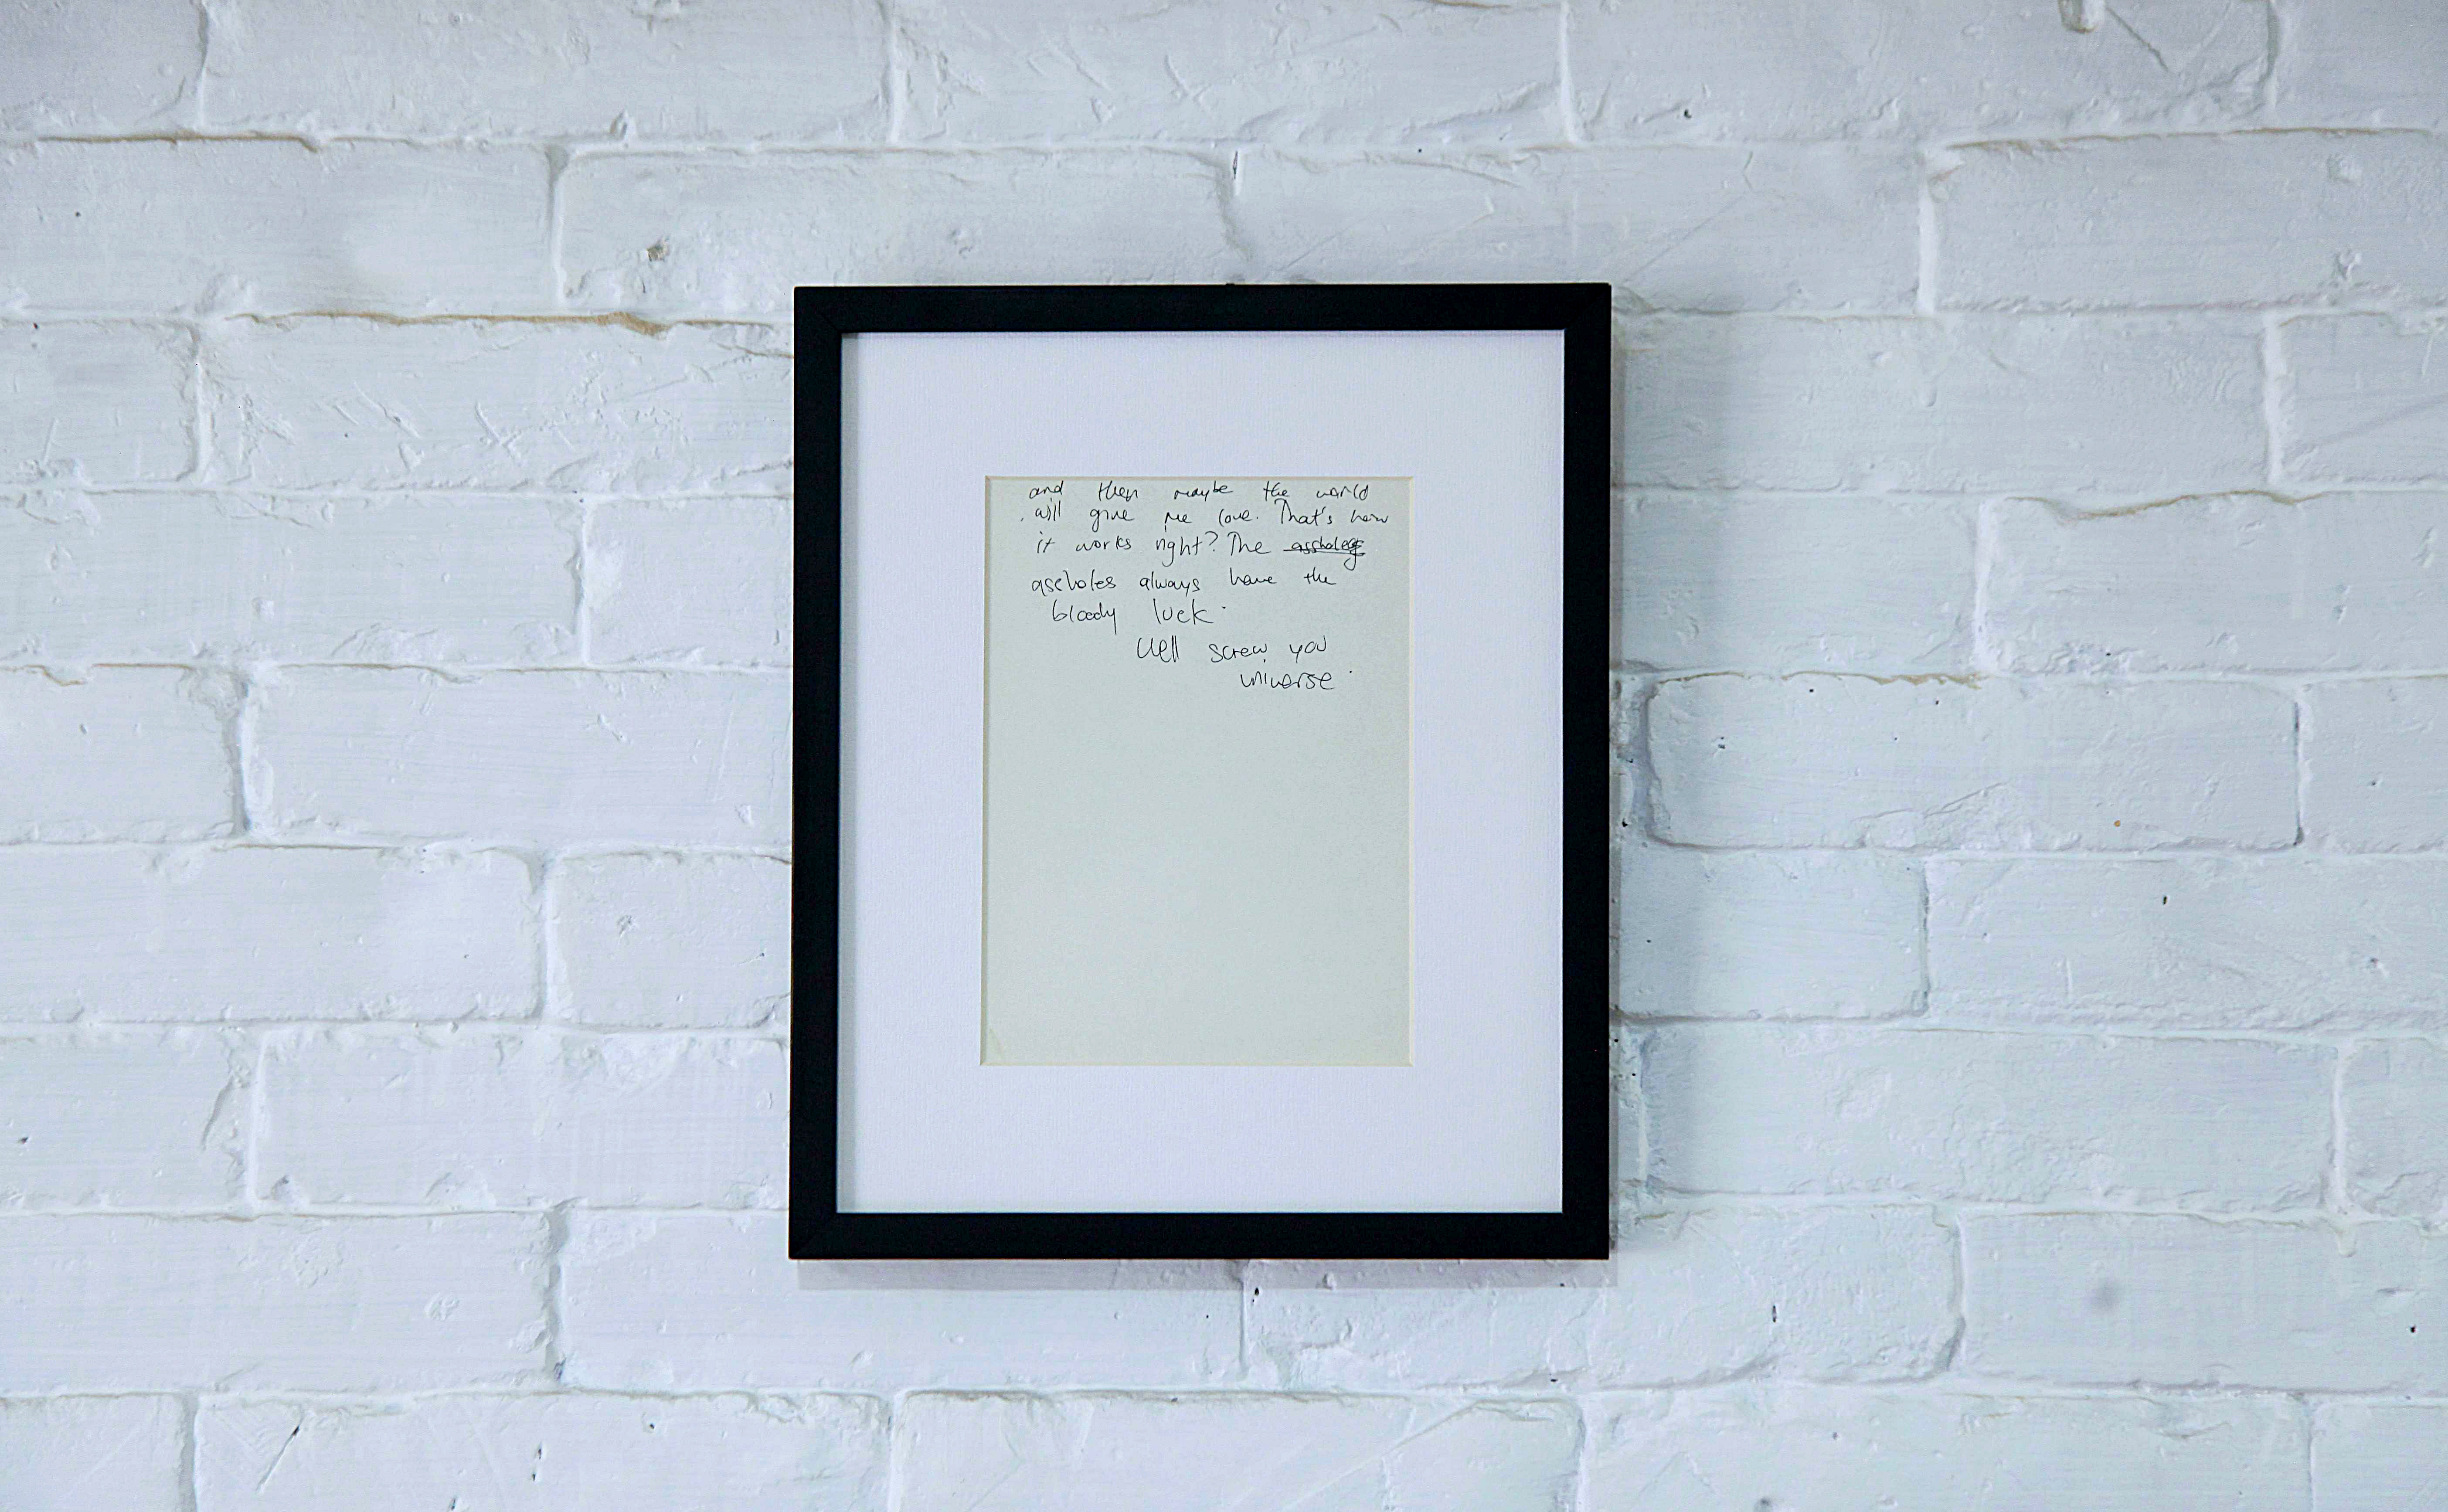 and then maybe the world
will give me love. That's how
it works right? The assholes
assholes always have the
bloody luck.
Well screw you
universe.